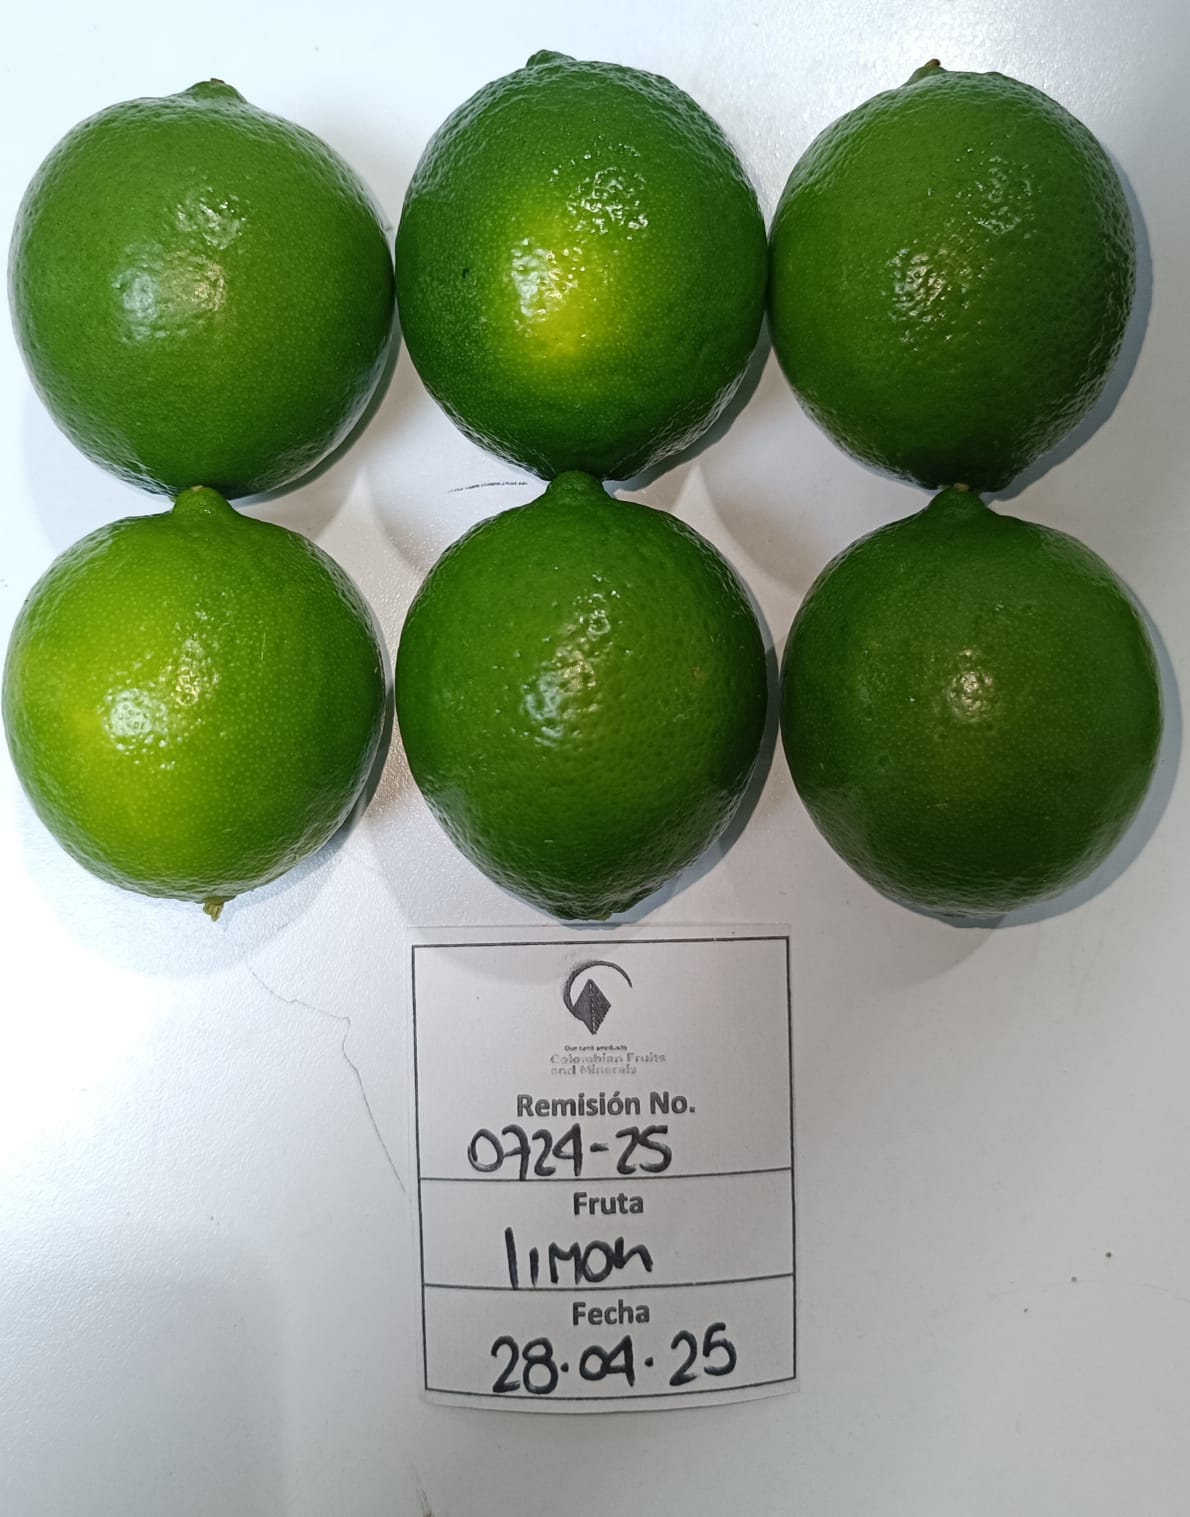 Our land products
Colombian Fruits
and Minerals
Remisión No.
0724-25
Fruta
limon
Fecha
28.04.25